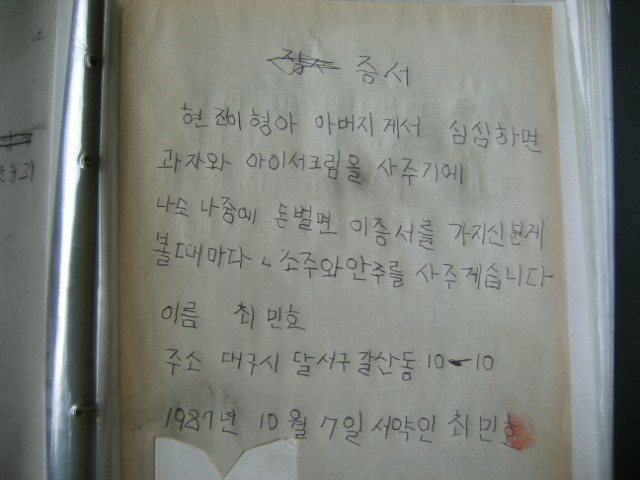 증서
현진이형아 아버지게서 심심하면
과자와 아이서크림을 사주기에
나는 나중에 돈벌면 이증서를 가지신분게
볼때마다 소주와안주를 사주게습니다
이름 최민호
주소 대구시 달서구 갈산동 10-10
1987년 10월 7일 서약인 최민호